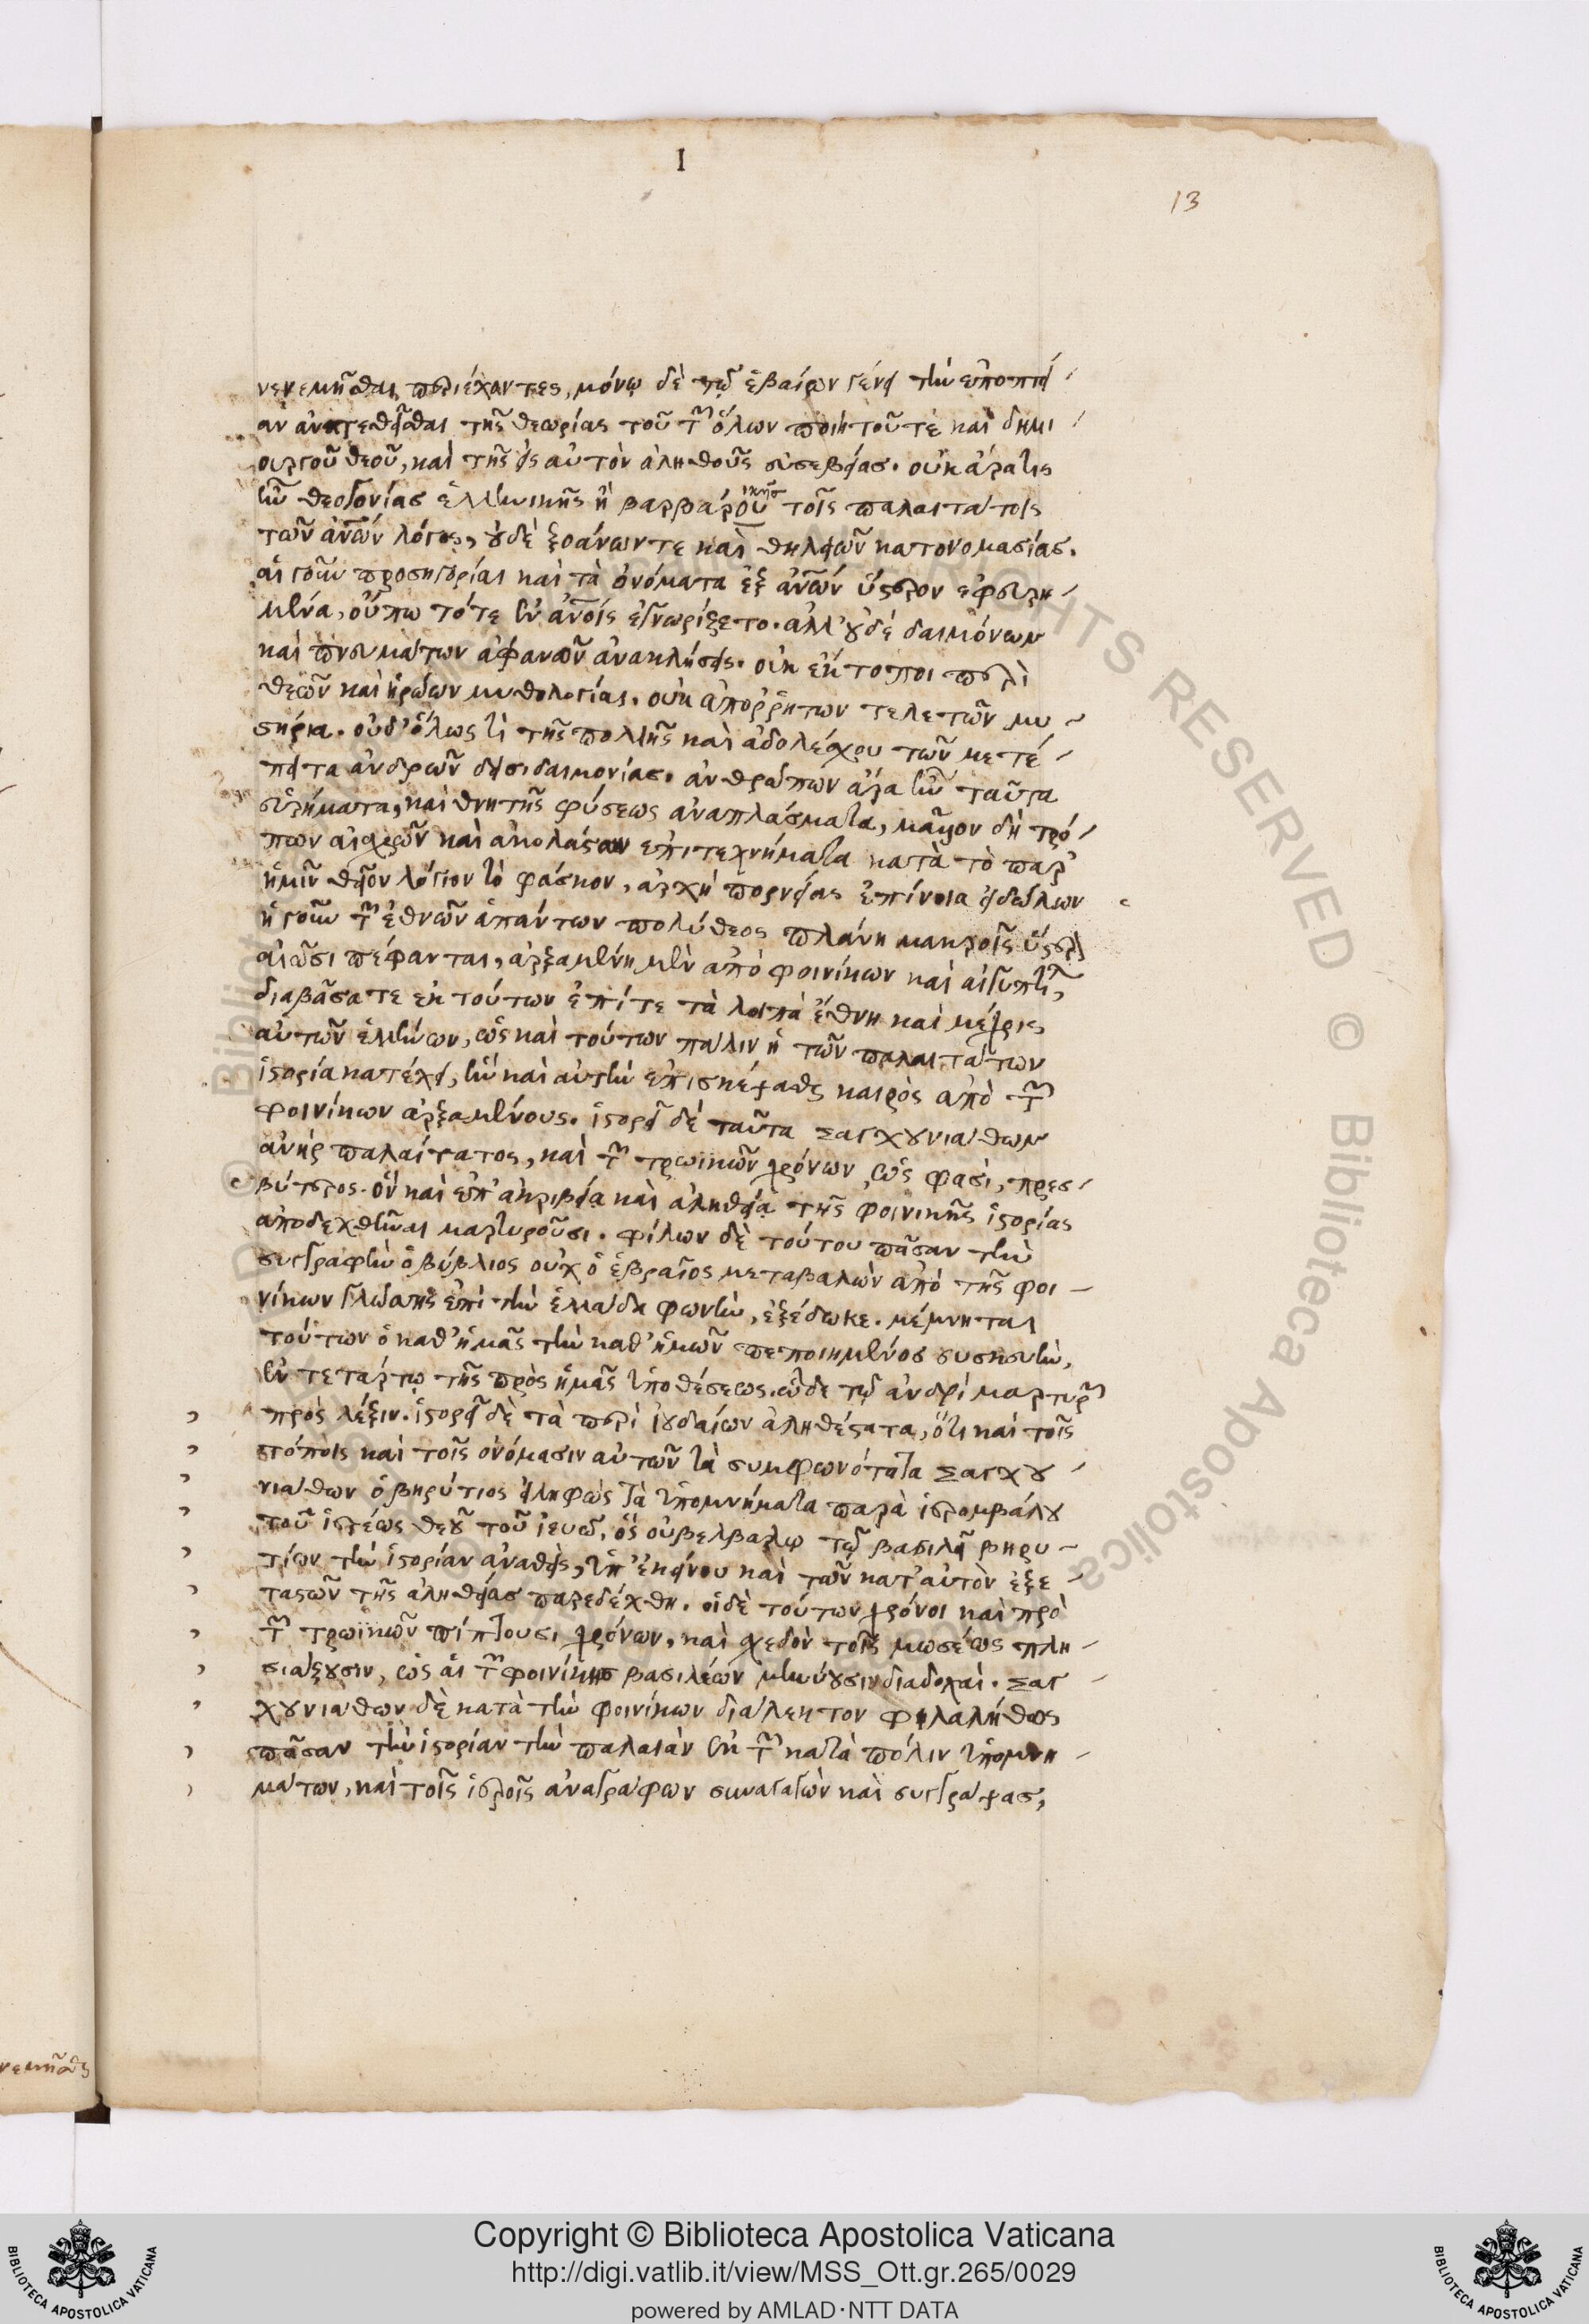 I
13
νενεμῆσθαι περιέχοντες, μόνῳ δὲ τῷ ἑβαίρων γένει τὴν ἐποπτεί
αν ἀνατεθεῖσθαι τῆς θεωρίας τοῦ τῶν ὅλων ποιητοῦ τὲ καὶ δημι
ουργοῦ θεοῦ, καὶ τῆς εἰς αὐτὸν ἀληθοῦς εὐσεβείας. οὐκ ἄρα τις
ἦν θεογονίας ἑλληνικῆς ἢ βαρβάρου ικῆς τοῖς παλαιτάτοις
τῶν ἀνων λόγος, οὐδὲ ξοάνων τε καὶ θηλειῶν κατονομασίας.
αἱ γοῦν προσηγορίαι καὶ τὰ ὀνόματα ἐξ ἀνων ὕστερον ἐφευρη
μένα, οὔπω τότε ἐν ἀνοις ἐγνωρίζετο. ἀλλ' οὐδὲ δαιμόνων
καὶ πνευμάτων ἀφανῶν ἀνακλήσεις. οὐκ ἔκτοποι περὶ
θεῶν καὶ ἡρώων μυθολογίαι. οὐκ ἀπορρήτων τελετῶν μυ
στήρια. οὐδ' ὅλως τὶ τῆς πολλῆς καὶ ἀδολέσχου τῶν μετέ
πειτα ἀνδρῶν δεισιδαιμονίας. ἀνθρώπων ἄρα ἦν ταῦτα
εὑρήματα, καὶ θνητῆς φύσεως ἀναπλάσματα, μᾶλλον δὴ τρό
πων αἰσχρῶν καὶ ἀκολάστων ἐπιτεχνήματα κατὰ τὸ παρ'
ἡμῖν θεῖον λόγιον τὸ φάσκον, ἀρχὴ πορνείας ἐπίνοια εἰδώλων
ἡ γοῦν τῶν ἐθνῶν ἁπάντων πολύθεος πλάνη μακροῖς ὕστερ
αἰῶσι πέφανται, ἀρξαμένη μὲν ἀπὸ φοινίκων καὶ αἰγυπτίων,
διαβᾶσα τε ἐκ τούτων ἐπί τε τὰ λοιπὰ ἔθνη καὶ μέχρις
αὐτῶν ἑλλήνων, ὡς καὶ τούτων πάλιν ἡ τῶν παλαιτάτων
ἱστορία κατέχει, ἣν καὶ αὐτὴν ἐπισκέψασθαι καιρὸς ἀπὸ τῶν
φοινίκων ἀρξαμένους. ἱστορεῖ δὲ ταῦτα Σαγχουνιάθων
ἀνὴρ παλαίτατος, καὶ τῶν τρωϊκῶν χρόνων, ὥς φασι, πρεσ
βύτερος. ὃν καὶ ἐπ' ἀκριβεία καὶ ἀληθείᾳ τῆς φοινικῆς ἱστορίας
ἀποδεχθῆναι μαρτυροῦσι. φίλων δὲ τούτου πᾶσαν τὴν
συγγραφὴν ὁ βύβλιος οὐχ ὁ ἑβραῖος μεταβαλὼν ἀπὸ τῆς φοι
νίκων γλώσσης ἐπὶ τὴν ἑλλάδα φωνὴν, ἐξέδωκε. μέμνηται
τούτων ὁ καθ' ἡμᾶς τὴν καθ' ἡμῶν πεποιημένος συσκευὴν,
ἐν τετάρτῳ τῆς πρὸς ἡμᾶς ὑποθέσεως. ὧδε τῷ ἀνδρὶ μαρτυρῶν
πρὸς λέξιν. ἱστορεῖ δὲ τὰ περὶ ἰουδαίων ἀληθέστατα, ὅτι καὶ τοῖς
τόποις καὶ τοῖς ὀνόμασιν αὐτῶν τὰ συμφωνότατα Σαγχου
νιάθων ὁ βηρύτιος εἰληφὼς τὰ ὑπομνήματα παρὰ ἱερομβάλου
τοῦ ἱερέως θεοῦ τοῦ ἰευώ, ὃς οὐβελβαλῳ τῷ βασιλεῖ βηρυ
τίων τὴν ἱστορίαν ἀναθεὶς, ὑπ' ἐκείνου καὶ τῶν κατ' αὐτὸν ἐξε
ταστῶν τῆς ἀληθείας παρεδέχθη. οἱ δὲ τούτων χρόνοι καὶ πρὸ
τῶν τρωϊκῶν πίπτουσι χρόνων, καὶ σχεδὸν τοῖς μωσέως πλη
σιάζουσιν, ὡς αἱ τῶν φοινίκης βασιλέων μηνύουσιν διαδοχαί. Σαγ
χουνιάθων δὲ κατὰ τὴν φοινίκων διάλεκτον φιλαλήθως
πᾶσαν τὴν ἱστορίαν τὴν παλαιὰν ἐκ τῶν κατὰ πόλιν ὑπομνη
μάτων, καὶ τοῖς ἱεροῖς ἀναγράφων συναγαγὼν καὶ συγγράψας,
Copyright © Biblioteca Apostolica Vaticana
http://digi.vatlib.it/view/MSS_Ott.gr.265/0029
powered by AMLAD·NTT DATA
BIBLIOTECA APOSTOLICA VATICANA
BIBLIOTECA APOSTOLICA VATICANA